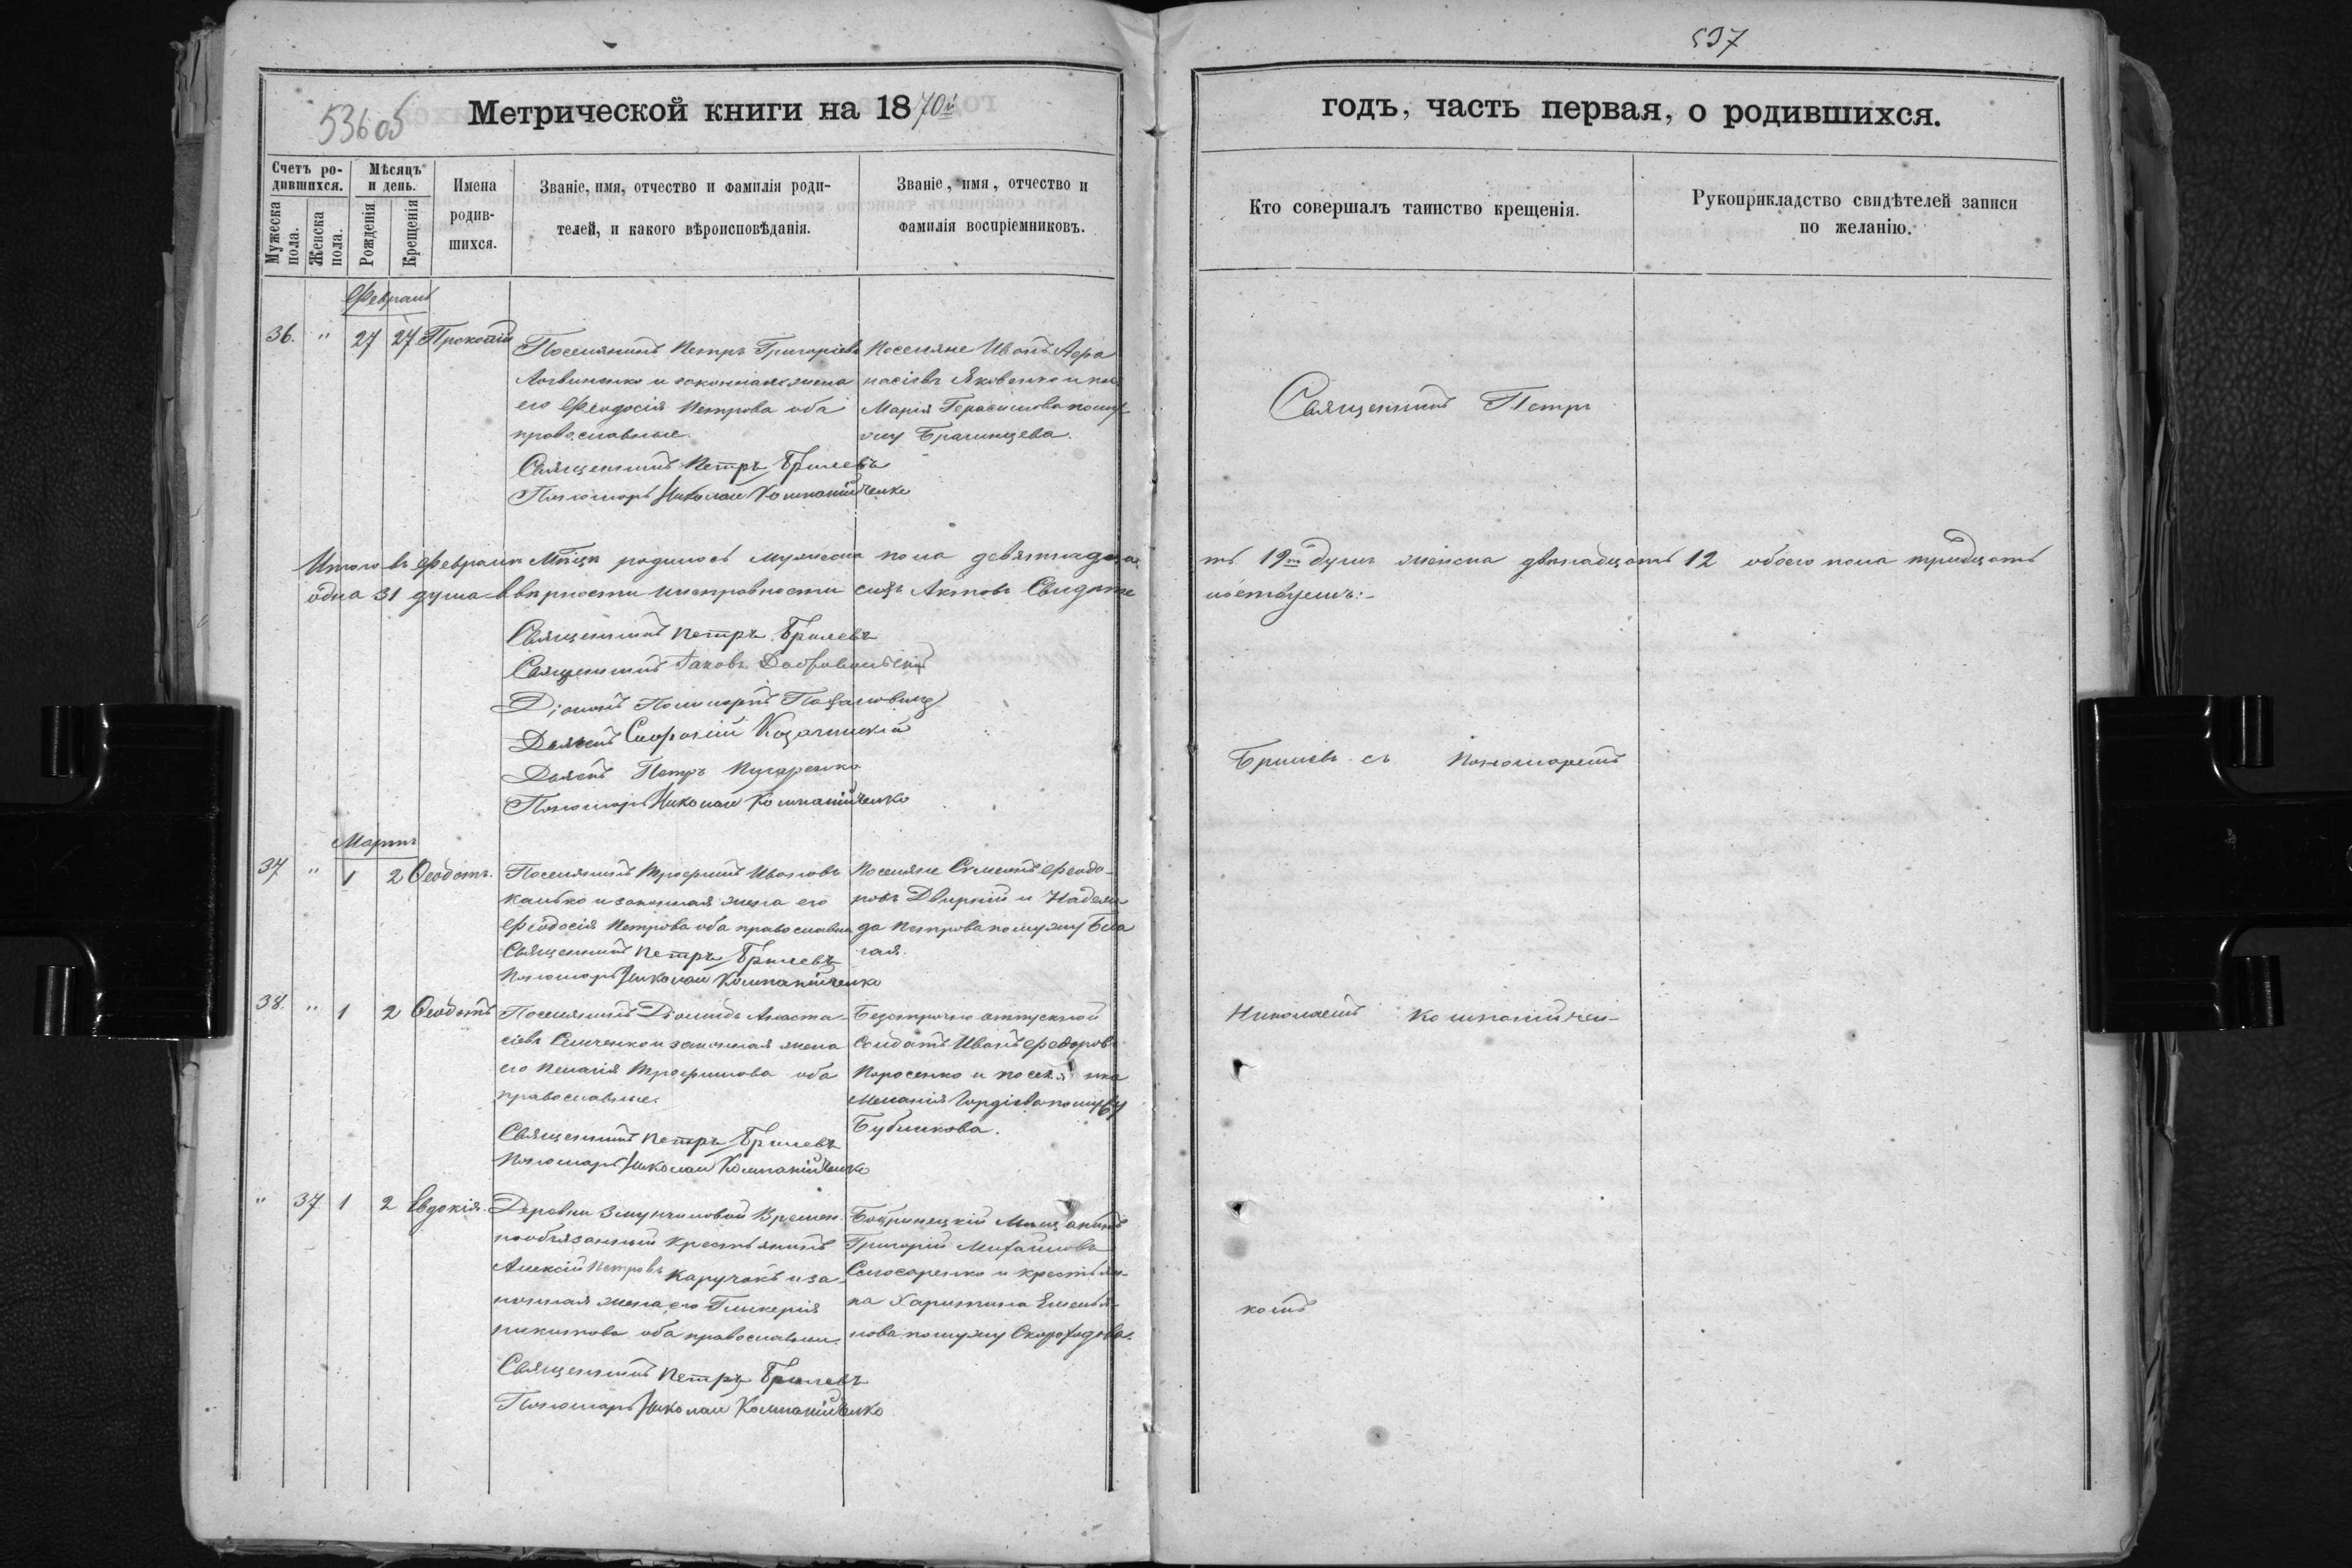 537
536 об
Метрической книги на 1870й
годъ, часть первая, о родившихся.
Счетъ ро-
дившихся.
Мѣсяцъ
и день.
Мужеска
пола.
Женска
пола.
Рожденія
Крещенія
Имена
родив-
шихся.
Званіе, имя, отчество и фамилія роди-
телей, и какого вѣроисповѣданія.
Званіе, имя, отчество и
фамилія воспріемниковъ.
Кто совершалъ таинство крещенія.
Рукоприкладство свидѣтелей записи
по желанію.
Февраль
36. " 27 27 Прокопій
Поселянинъ Петръ Григоріевъ
Логвиненко и законная жена
его Феодосія Петрова оба
православные.
Священникъ Петръ Брилевъ
Пономарь Николай Компанійченко
Поселяне Иванъ Афа
насіевъ Яковенко и
Марія Герасимова по му
жу Брагинцева.
Итого въ Февралѣ Мѣсяцѣ родилось мужеска пола девятнадца
ть 19ть душъ женска двѣнадцать 12 обоего пола тридцать
одна 31 душа Ввѣрности и исправности сихъ Актовъ Свидѣте
льствуемъ:-
Священникъ Петръ Брилевъ
Священникъ Іаковъ
Діаконъ
Дьячекъ Софроній Козачинскій
Дьячекъ Петръ
Пономарь Николай Компанійченко
Мартъ
37. " 1 2 Ѳеодотъ.
Поселянинъ Трофимъ Ивановъ
Калько и законная жена его
Феодосія Петрова оба православны
Священникъ Петръ Брилевъ
Пономарь Николай Компанійченко
Поселяне Симеонъ Феодо-
ровъ Двирній и Надеж
да Петрова по мужу Бѣла
гая.
38. " 1 2 Ѳеодотъ
Поселянинъ Діомидъ Анаста-
сіевъ Семченко и законная жена
его Пелагія Трофимова оба
православные.
Священникъ Петръ Брилевъ
Пономарь Николай Компанійченко
Безсрочно отпускной
Солдатъ Иванъ Федоровъ
Поросенко и поселянка
Меланія Гордіева по мужу
Бубликова.
" 37 1 2 Евдокія.
Деревни Змунчиловой Времен
нообязанный Крестьянинъ
Алексій Петровъ Каручокъ и за-
конная жена его Гликерія
Никитова оба православны.
Священникъ Петръ Брилевъ
Пономарь Николай Компанійченко
Бобринецкій Мѣщанинъ
Григорій Михайловъ
Слюсаренко и крестьян-
ка Харитина Емелья-
нова по мужу Скороходова.
Священникъ Петръ
Брилевъ съ Пономаремъ
Николаемъ Компанійчен-
комъ